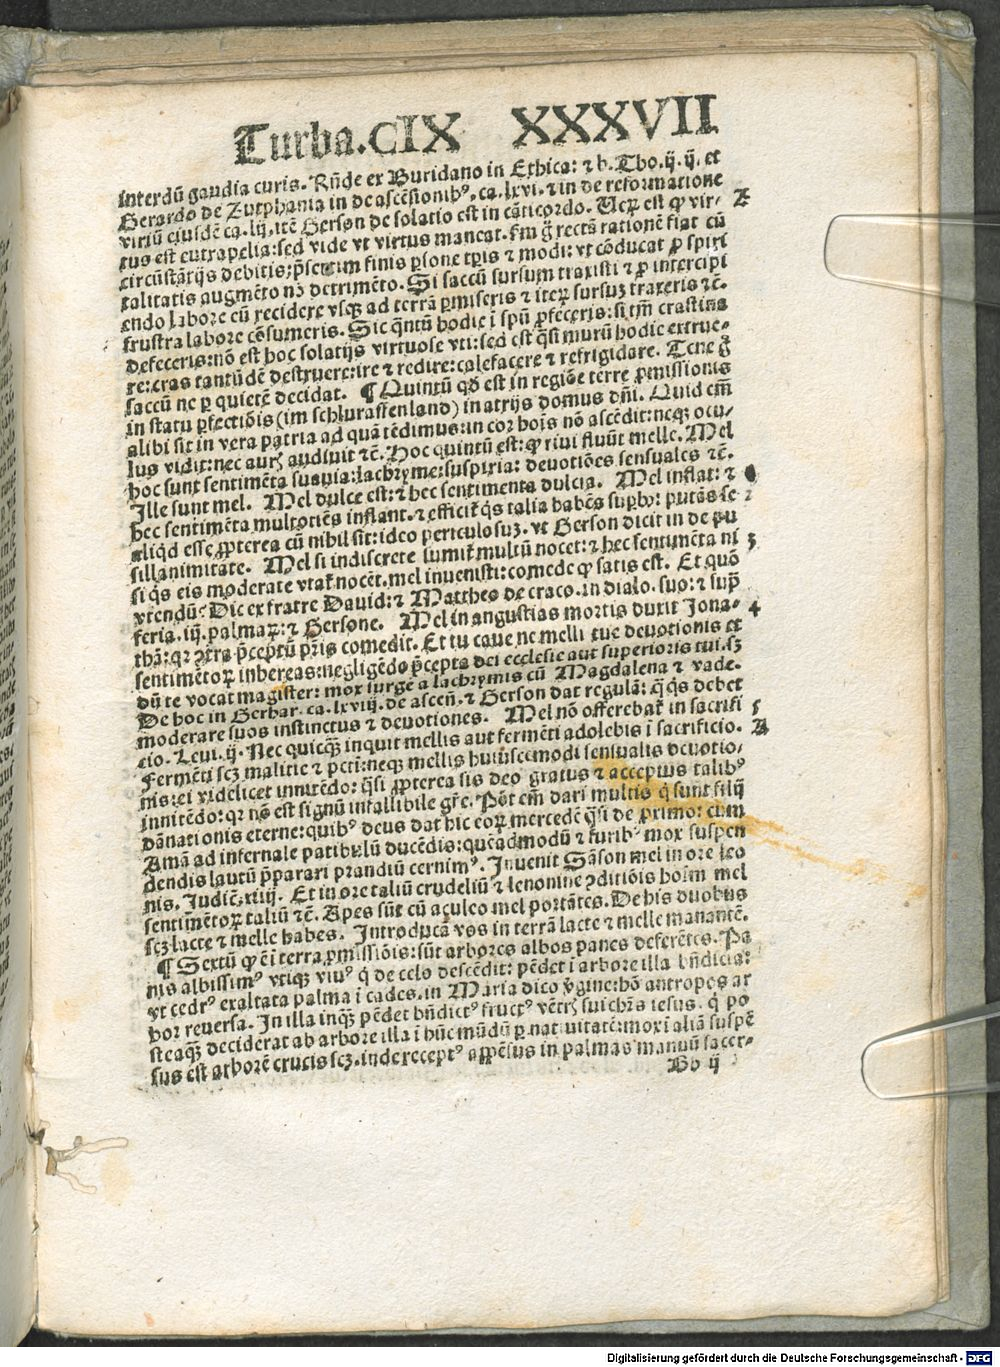 Turba.CIX XXXVII
interdū gaudia curis. Rn̄de ex Buridano in Ethica: ⁊ b. Tho. ij. ij. et
Gerardo de Zutphania in de ascēsionibꝰ, ca. lxvi. ⁊ in de reformatione Z
viriū eiusdē ca. lij. itē Gerson de solatio est in cāticordo. Uerū est ꝙ vir-
tus est eutrapelia: sed vide vt virtus maneat. fm̄ ḡ rectā rationē fiat cū
circūstātijs debitis; p̄sertim finis ꝑsone tꝑis ⁊ modi: vt cōducat ꝓ spiri
talitatis augmēto nō detrimēto. Si saccū sursum traxisti ⁊ ꝑ intercipi
endo labore eū recidere vsqꝫ ad terrā ꝑmiseris ⁊ iteꝝ sursuꝫ traxeris ⁊c̄.
frustra labore cōsumeris. Sic q̄ntū hodie ī spū ꝓfeceris: si tm̄ crastina
defeceris: nō est hoc solatijs virtuose vti: sed est q̄si murū hodie extrue-
re: cras tantūdē destruere: ire ⁊ redire: calefacere ⁊ refrigidare. Tene ḡ
saccū ne ꝑ quietē decidat. ¶ Quintū qd̄ est in regiōe terre ꝓmissionis
in statu ꝑfectiōis (im schlurassenland) in atrijs domus dn̄i. Quid em̄
alibi sit in vera patria ad quā tēdimus: in cor hoīs nō ascēdit: neqꝫ ocu-
lus vidit: nec auris audiuit ⁊c̄. Hoc quintū est: ꝙ riui fluūt melle. Mel
hoc sunt sentimēta suauia: lachryme: suspiria: deuotiōes sensuales ⁊c̄.
Ille sunt mel. Mel dulce est: ⁊ hec sentimenta dulcia. Mel inflat: ⁊ 1
hec sentimēta multotiēs inflant. ⁊ efficit̄ q̄s talia habēs supbꝰ: putās se 2
aliqd esse, ꝓpterea cū nihil sit: ideo periculosuꝫ. vt Gerson dicit in de pu
sillanimitate. Mel si indiscrete sumit̄ multū nocet: ⁊ hec sentimēta ni 3
si q̄s eis moderate vtat̄ nocēt. mel inuenisti: comede ꝙ satis est. Et quō
vtendū: Dic ex fratre Dauid: ⁊ Mattheo de craco. in dialo. suo: ⁊ sup̄
feria. iij. palmaꝝ: ⁊ Gersone. Mel in angustias mortis duxit Jona- 4
thā: qꝛ ꝯtra p̄ceptū pr̄is comedit. Et tu caue ne melli tue deuotionis et
sentimētoꝝ inhereas: negligēdo p̄cepta dei ecclesie aut superioris tui. sꝫ
dū te vocat magister: mox surge a lachrymis cū Magdalena ⁊ vade.
De hoc in Gerhar. ca. lxviij. de ascen̄. ⁊ Gerson dat regulā: q̄ q̄s debet
moderare suos instinctus ⁊ deuotiones. Mel nō offerebat̄ in sacrifi 5
cio. Leui. ij. Nec quicqꝫ inquit mellis aut fermēti adolebis ī sacrificio. A
Fermēti scꝫ malitie ⁊ pctī: neqꝫ mellis huiuscemodi sensualis deuotio-
nis: ei videlicet innitēdo: q̄si ꝓpterea sis deo gratus ⁊ acceptus talibꝰ
innitēdo: qꝛ nō est signū infallibile gr̄e. Pōt em̄ dari multis q̄ sunt filij
dānationis eterne: quibꝰ deus dat hic eoꝝ mercedē q̄si de primo: cum
Amā ad infernale patibulū ducēdis: queadmodū ⁊ furibꝰ mox suspen
dendis lautū p̄parari prandiū cernimꝰ. Inuenit Sāson mel in ore leo
nis. Judic̄. xiiij. Et in ore taliū crudeliū ⁊ lenonine ꝯditiōis hoīm mel
sentimētoꝝ taliū ⁊c̄. Apes sūt cū aculeo mel portātes. De his duobus
scꝫ lacte ⁊ melle habes. Introducā vos in terrā lacte ⁊ melle manantē.
¶ Sextū ꝙ ē ī terra ꝓmissiōis: sūt arbores albos panes deferētes. Pa
nis albissimꝰ vtiqꝫ viuꝰ q̄ de celo descēdit: pēdet ī arbore illa bn̄dicta:
vt cedrꝰ exaltata palma ī cades. in Maria dico v̄gine: hō antropos ar
bor reuersa. In illa inqꝫ pēdet bn̄dictꝰ fructꝰ vētris sui chr̄s iesus. q̄ po
steaqꝫ deciderat ab arbore illa ī hūc mūdū ꝑ natiuitatē: mox ī aliā suspē
sus est arborē crucis scꝫ. inde receptꝰ appēsus in palmas manuū sacer-
Bb ij
Digitalisierung gefördert durch die Deutsche Forschungsgemeinschaft - DFG